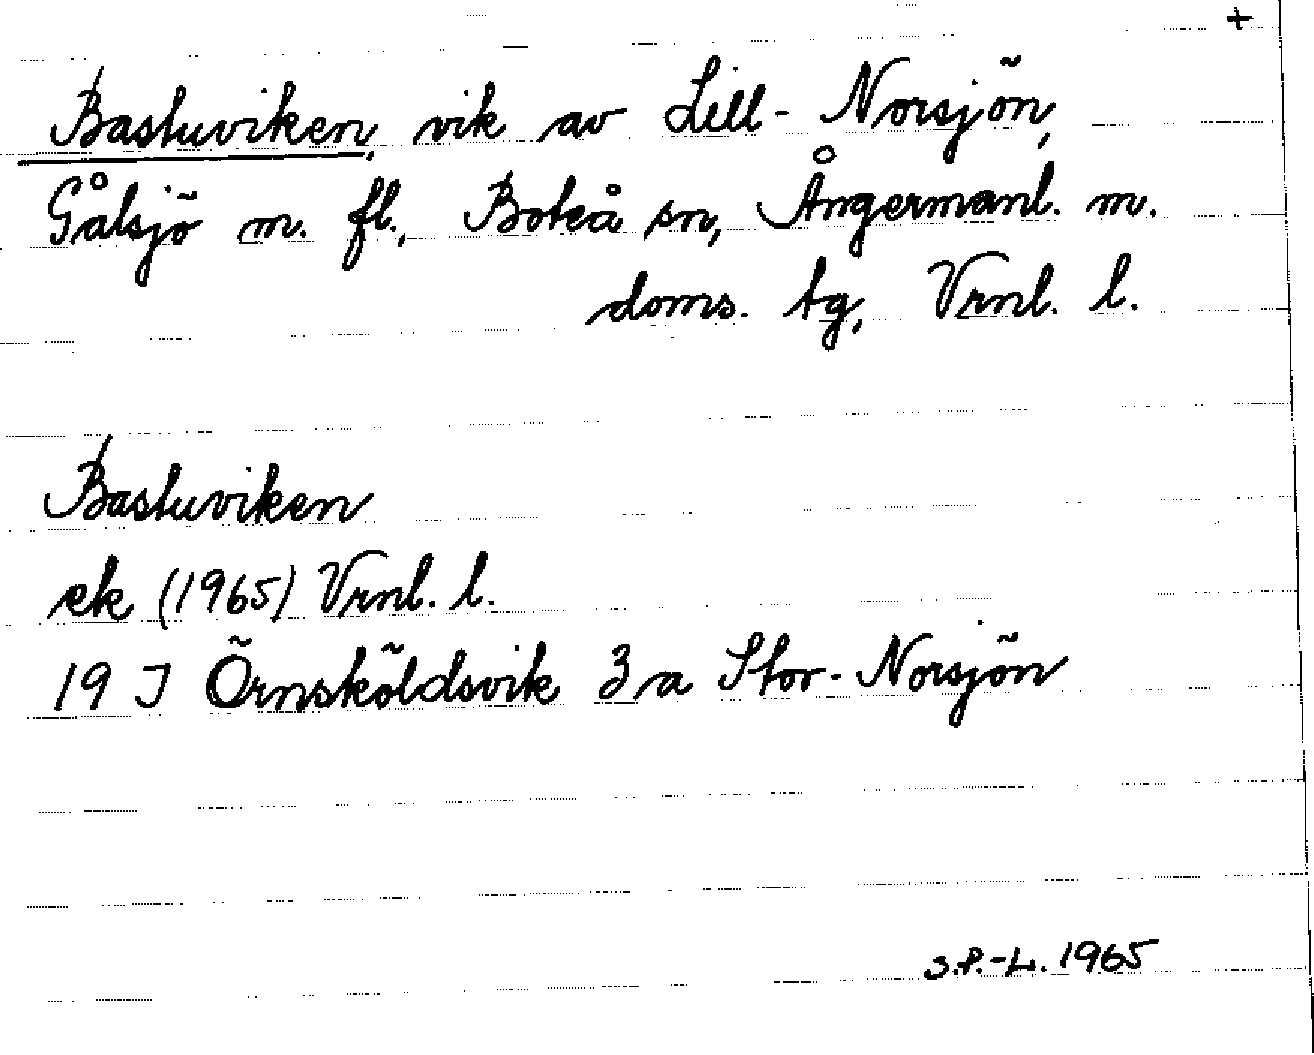 +
Bastuviken, vik av Lill-Norsjön,
Gålsjö m. fl., Boteå sn, Ångermanl. m.
doms. tg, Vrnl. l.
Bastuviken
ek (1965) Vrnl. l.
19 J Örnsköldsvik 3 a Stor-Norsjön
S.P.-L. 1965